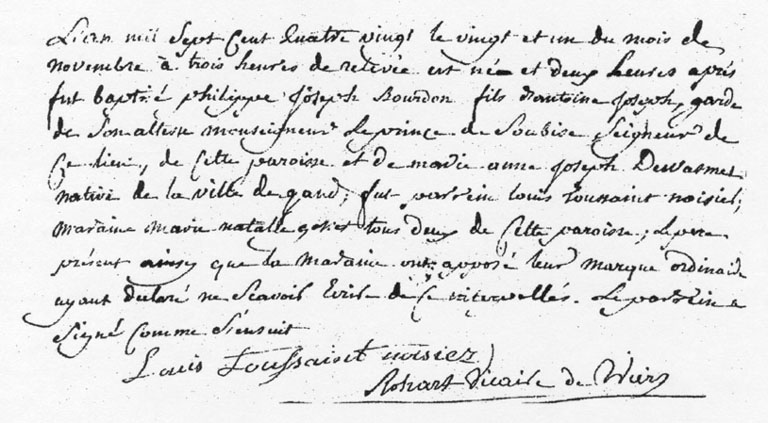 L'an mil sept cent quatre vingt le vingt et un du mois de
novembre à trois heures de relevée est né et deux heures après
fut baptisé philippe Joseph Bourdon fils d'antoine Joseph, garde
de Son altesse monseigneur Le prince de Soubise Seigneur de
Ce lieu, de Cette paroisse et de marie anne Joseph Dewasmes
native de la ville de gand; fut parrein louis toussaint noisiez;
maraine marie natalle tous deux de Cette paroisse; Le pere
présent ainsy que la maraine ont apposé leur marque ordinaire
ayant declaré ne Scavoir Ecrire de Ce interpellés. Le parrein a
Signé comme S'ensuit
Louis Toussaint noisiez
Rohart Vicaire de